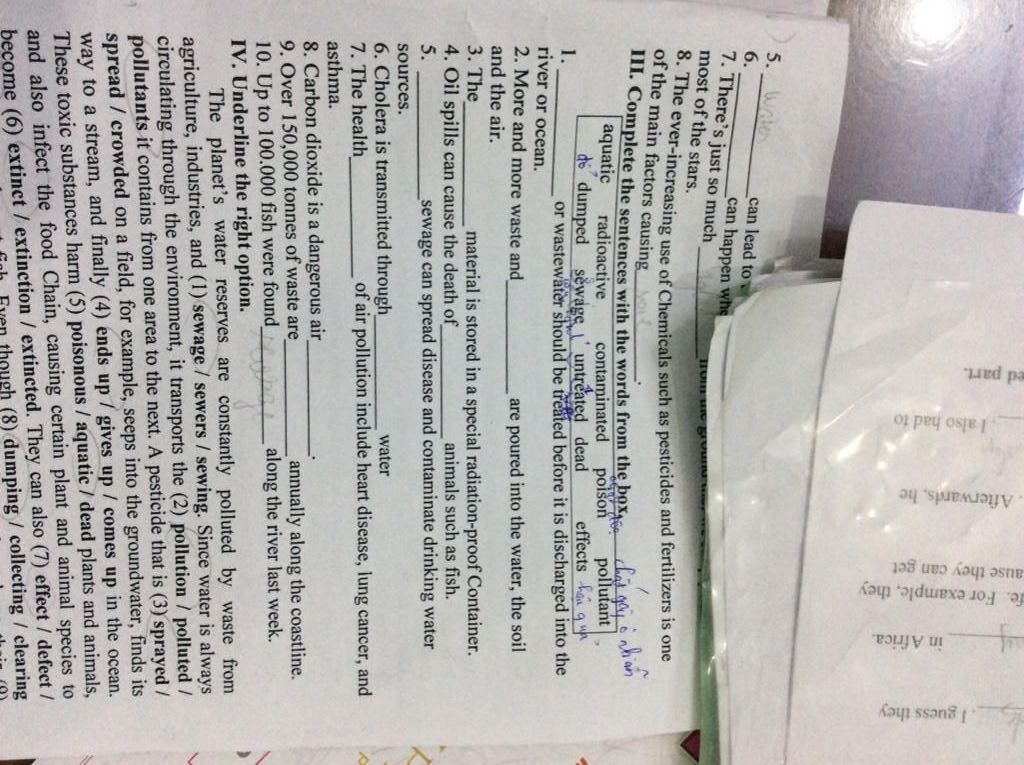 5. water
6. ____________ can lead to
7. ____________ can happen
7. There's just so much ____________
most of the stars.
8. The ever-increasing use of Chemicals such as pesticides and fertilizers is one
of the main factors causing ____________.
III. Complete the sentences with the words from the box.
aquatic radioactive contaminated poison pollutant
dumped sewage untreated dead effects
1. ____________ or wastewater should be treated before it is discharged into the
river or ocean.
2. More and more waste and ____________ are poured into the water, the soil
and the air.
3. The ____________ material is stored in a special radiation-proof Container.
4. Oil spills can cause the death of ____________ animals such as fish.
5. ____________ sewage can spread disease and contaminate drinking water
sources.
6. Cholera is transmitted through ____________ water
7. The health ____________ of air pollution include heart disease, lung cancer, and
asthma.
8. Carbon dioxide is a dangerous air ____________.
9. Over 150,000 tonnes of waste are ____________ annually along the coastline.
10. Up to 100.000 fish were found ____________ along the river last week.
IV. Underline the right option.
The planet's water reserves are constantly polluted by waste from
agriculture, industries, and (1) sewage / sewers / sewing. Since water is always
circulating through the environment, it transports the (2) pollution / polluted /
pollutants it contains from one area to the next. A pesticide that is (3) sprayed /
spread / crowded on a field, for example, seeps into the groundwater, finds its
way to a stream, and finally (4) ends up / gives up / comes up in the ocean.
These toxic substances harm (5) poisonous / aquatic / dead plants and animals,
and also infect the food Chain, causing certain plant and animal species to
become (6) extinct / extinction / extincted. They can also (7) effect / defect /
fish. Even though (8) dumping / collecting / clearing
ed part.
. I also had to
. Afterwards, he
ause they can get
fe. For example, they
in Africa.
. I guess they